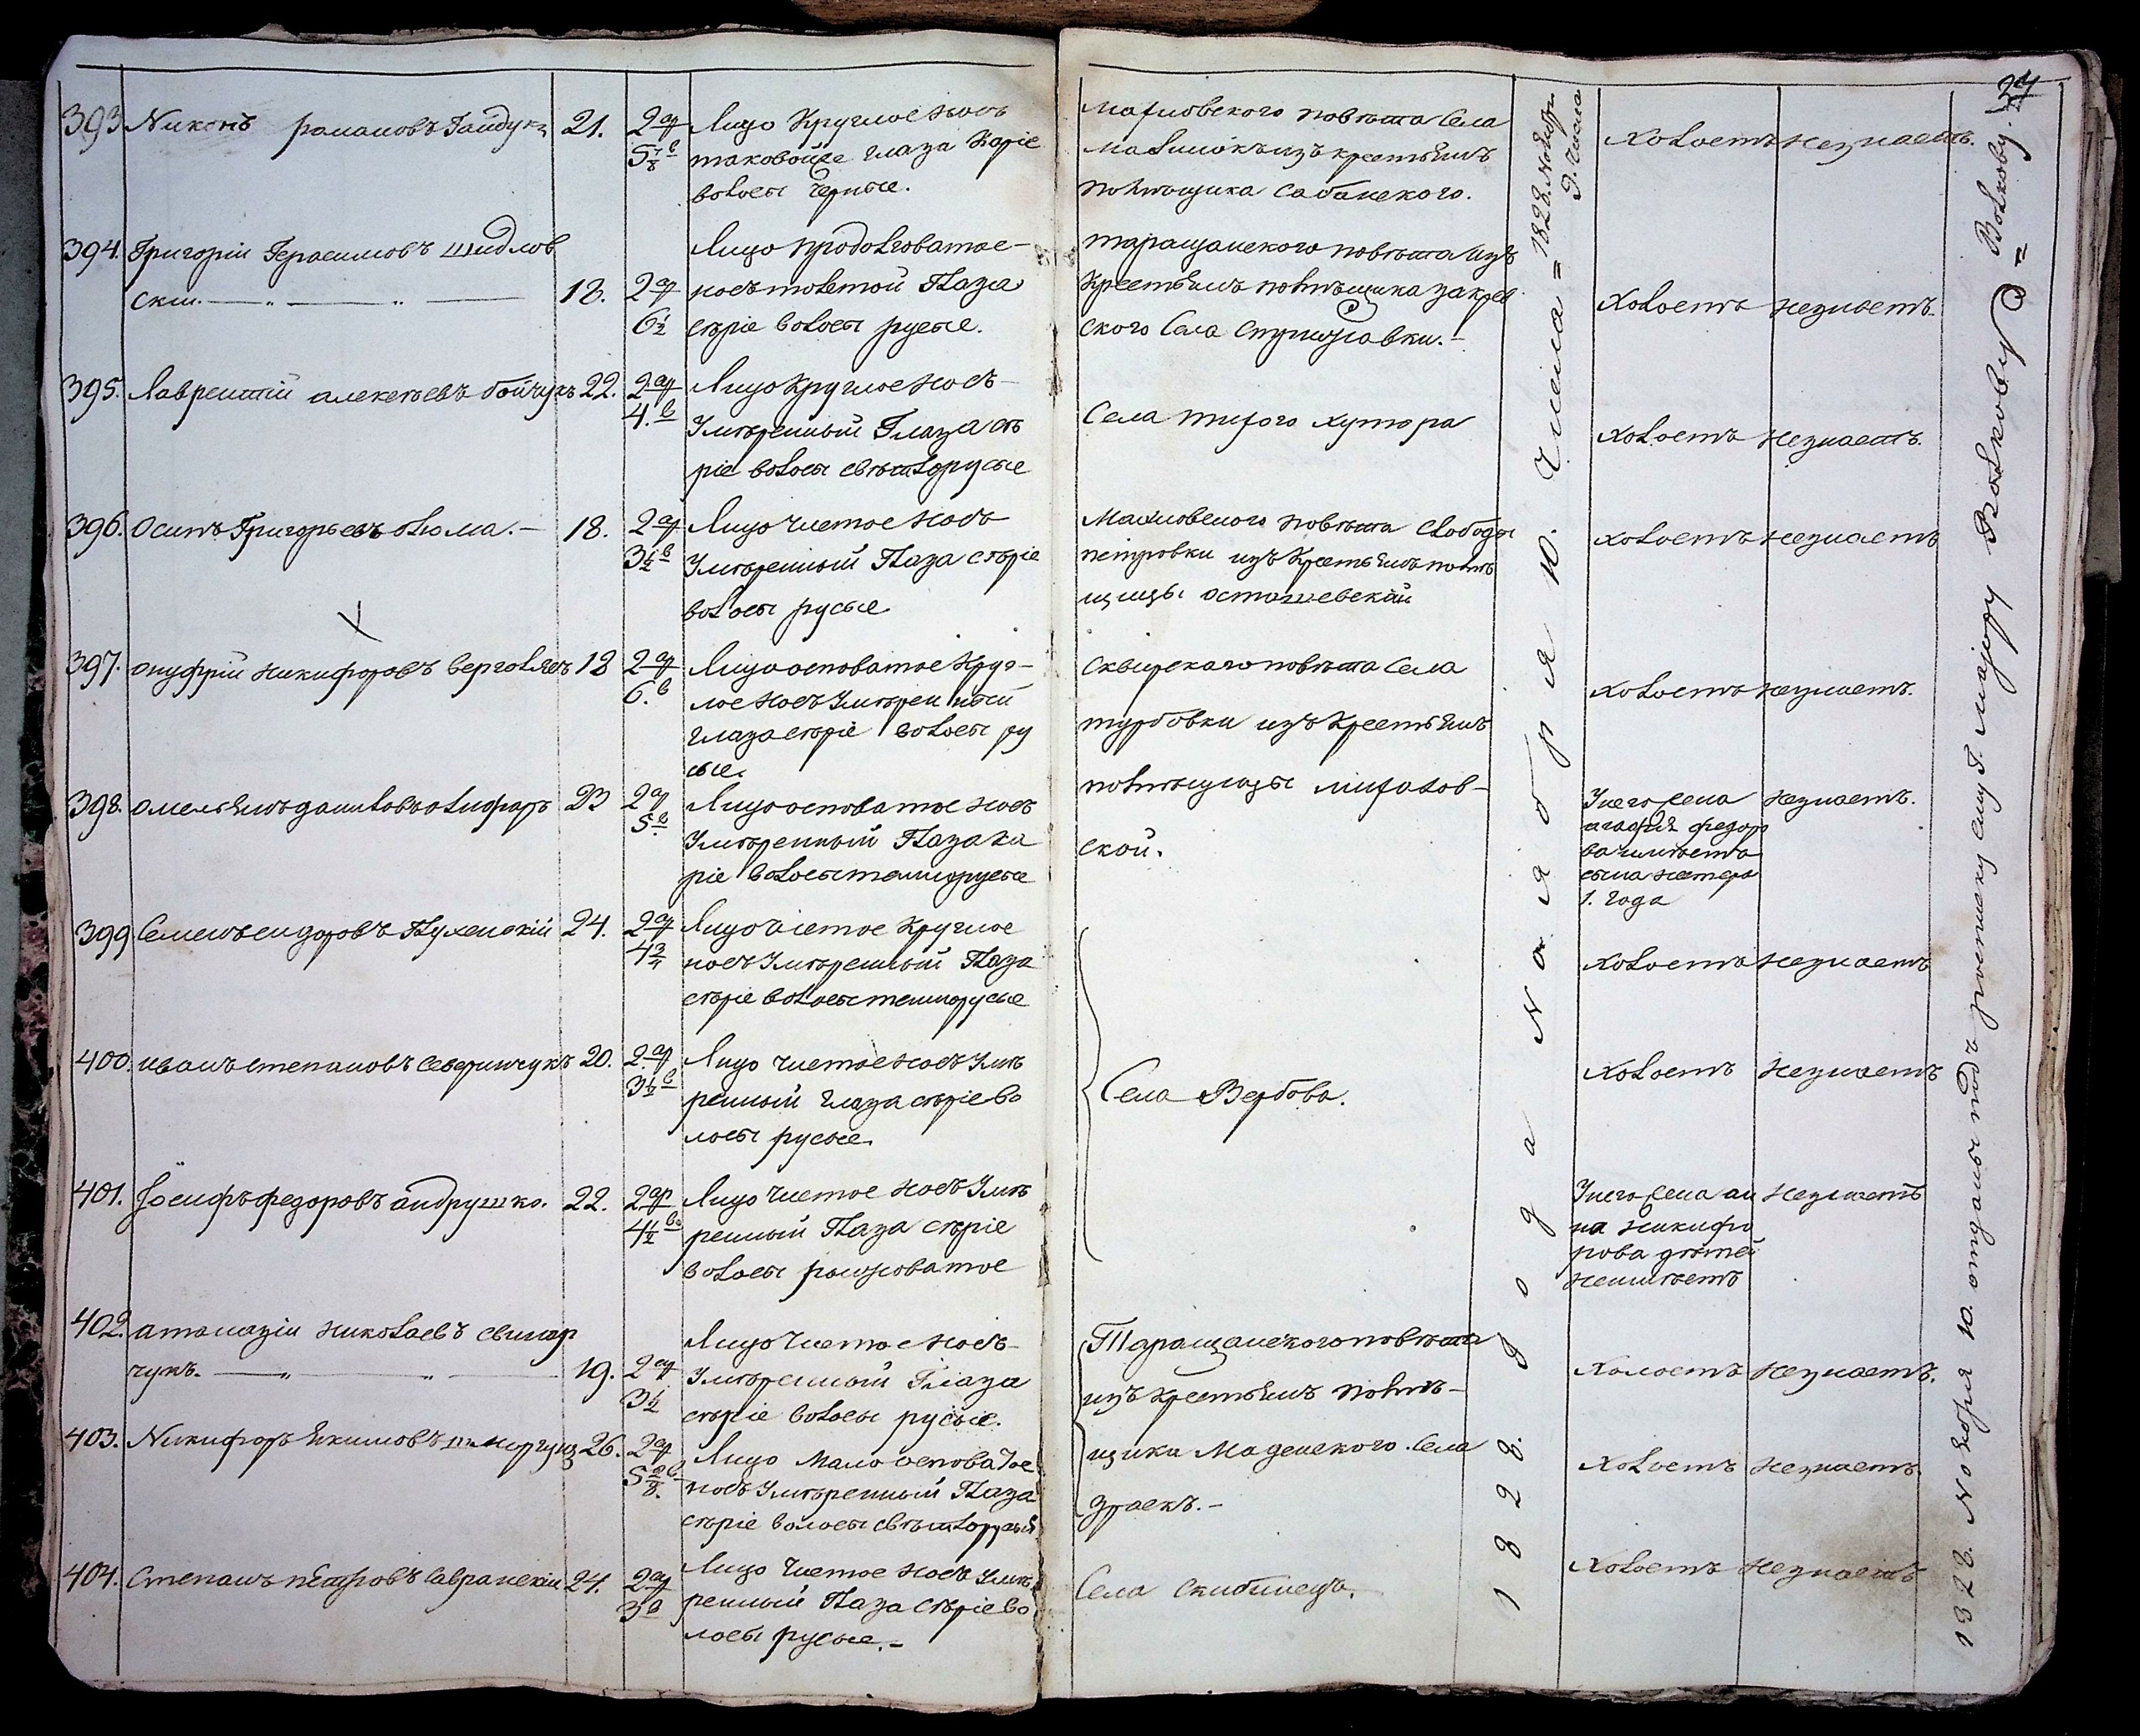 37
393. Никонъ романовъ Гайдукъ 21. 2 ар 5 7/8 в Лицо Круглое носъ
таковойже глаза Карiе
волосы Черные.
Махновского повѣта Села
Махнокъ изъ крестьянъ
помѣщика Сабанского.
1828. Ноября
9. Числа
Холостъ незнаетъ.
394. Григорiи Герасимовъ Шидлов
скiи. 18. 2 ар 6 1/2
Лицо продолговатое
носъ толстой Глаза
сѣрiе волосы русые.
таращанского повѣта изъ
Крестьянъ помѣщика закрев
ского Села
Холостъ незнаетъ.
395. Лаврентiй алексѣевъ бойчукъ 22. 2 ар 4. в
Лицо круглое носъ
Умѣренный Глаза сѣ
рiе волосы свѣтлорусые
Села тихого хутора
Холостъ незнаетъ.
396. Осипъ Григорьевъ 18. 2 ар 3 1/2 в
Лицо чистое носъ
Умѣренный Глаза сѣрiе
волосы русые
Махновского повѣта Слободы
петровки изъ Крестьянъ помѣ
щицы осташевскай
Холостъ незнаетъ
397. онуфрiй никифоровъ верголясъ 18 2 ар 6. в
Лицо осповатое Круг
лое носъ Умѣренный
глаза сѣрiе волосы ру
сые.
Сквирскаго повѣта Села
турбовки изъ Крестьянъ
помѣщицы михалов
ской.
Холостъ незнаетъ.
398. омельянъ даниловъ олифаръ 23 2 ар 5. в
Лицо осповатое носъ
Умѣренный Глаза ка
рiе волосы темнорусые
Унего жена
агафiя федор
ва имѣетъ
сына нестера
1. года
незнаетъ.
399. Семенъ сидоровъ Глуженскiй 24. 2 ар 4 3/4
Лицо чистое Круглое
носъ Умѣренный Глаза
сѣрiе волосы темнорусые
Холостъ незнаетъ
400. иванъ степановъ Северинчукъ 20. 2. ар 3 1/2 в
Лицо чистое носъ Умѣ
ренный глаза сѣрiе во
лосы русые.
Села Вербова.
Холостъ незнаетъ
401. Iосифъ федоровъ андрушко. 22. 2 ар 4 1/2 в
Лицо чистое носъ Умѣ
ренный Глаза сѣрiе
волосы рыжоватое
Унего жена ан
на никифо
рова дѣтей
неимѣетъ
незнаетъ
402. атаназiи николаевъ свинар
чукъ. 19. 2 ар 3 1/2
Лицо чистое носъ
Умѣренный Глаза
сѣрiе волосы русые.
Таращанского повѣта
изъ крестьянъ помѣ
щика Маденского. Села
Холостъ незнаетъ.
403. Никифоръ якимовъ 26. 2 ар
Лицо мало осповатое
носъ Умѣренный Глаза
сѣрiе волосы свѣтлорусый
Холостъ незнаетъ.
404. Степанъ петровъ Савранскiи 24. 2 ар 3 в
Лицо чистое носъ Умѣ
ренный Глаза сѣрiе во
лосы русые.
Села скибинецъ.
Холостъ незнаетъ
1828. года Ноября 10. Числа
1828. Ноября 10. отданы подъ росписку Маiору Волкову
Волкову.